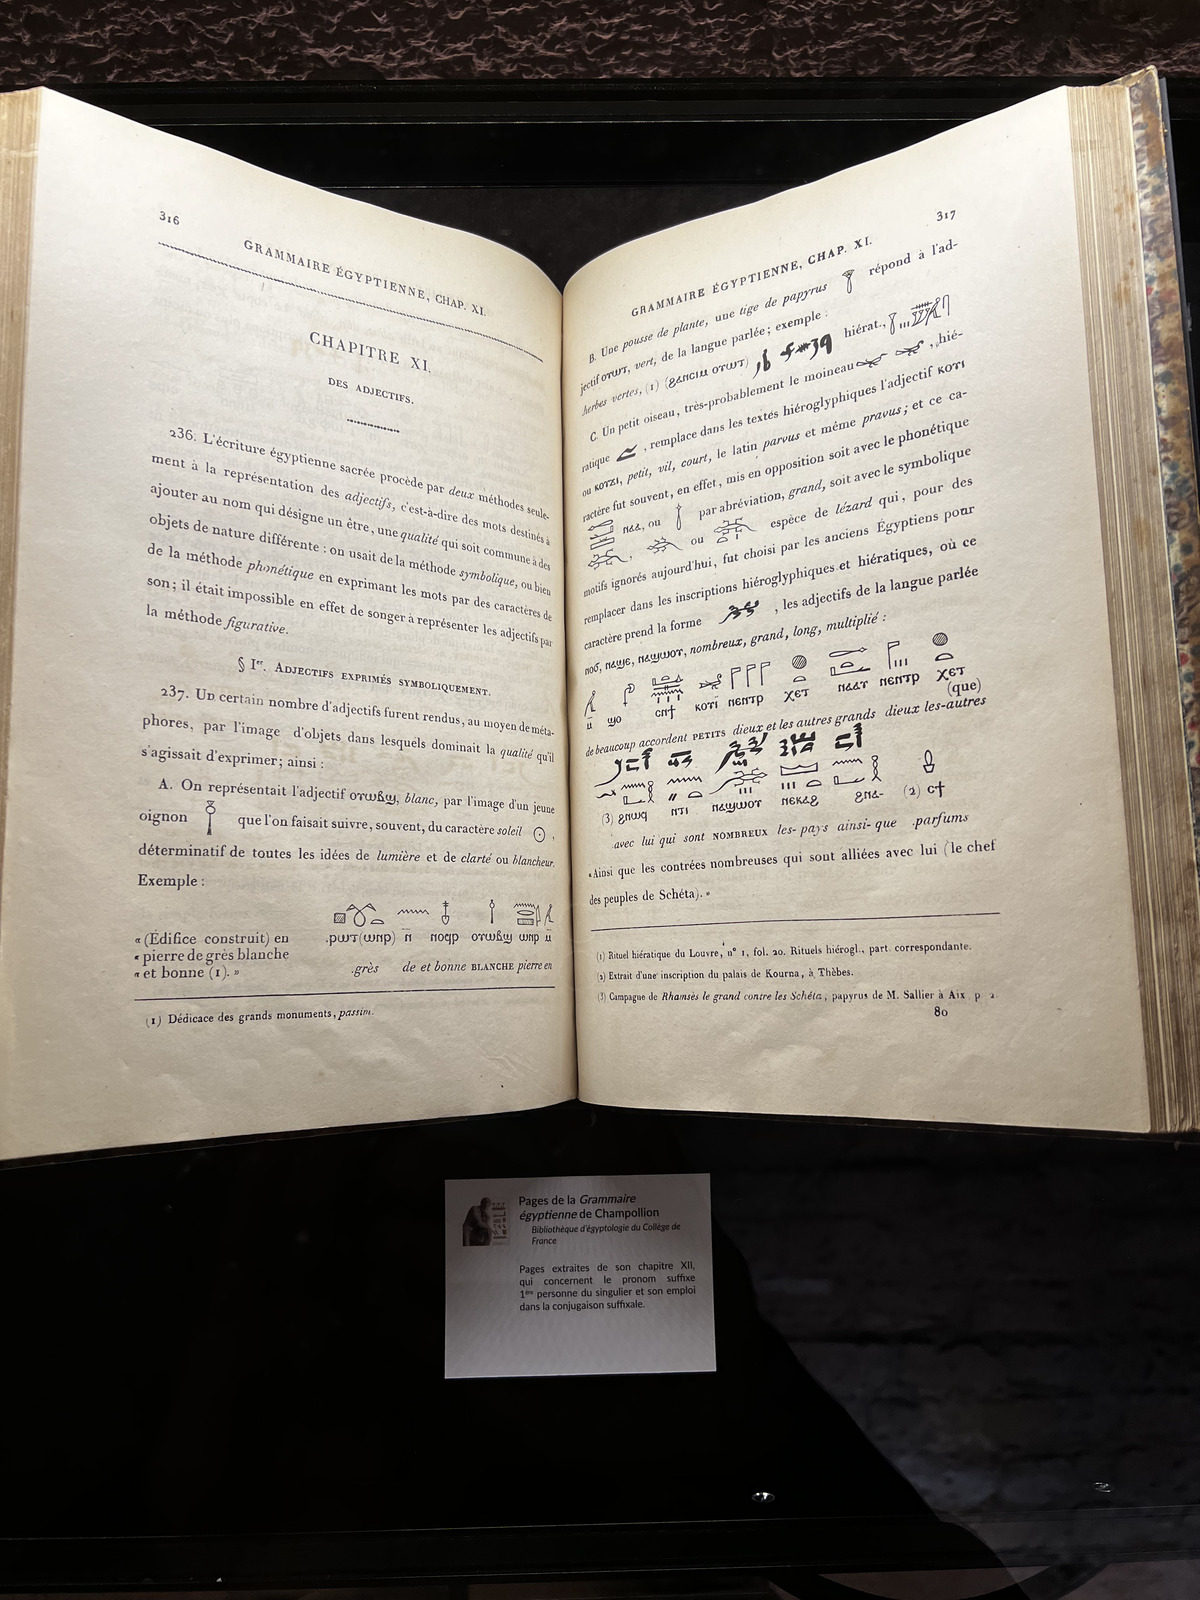 316
GRAMMAIRE ÉGYPTIENNE, CHAP. XI.
CHAPITRE XI.
DES ADJECTIFS.
236. L'écriture égyptienne sacrée procède par deux méthodes seule-
ment à la représentation des adjectifs, c'est-à-dire des mots destinés à
ajouter au nom qui désigne un être, une qualité qui soit commune à des
objets de nature différente : on usait de la méthode symbolique, ou bien
de la méthode phonétique en exprimant les mots par des caractères de
son; il était impossible en effet de songer à représenter les adjectifs par
la méthode figurative.
§ Ier. ADJECTIFS EXPRIMÉS SYMBOLIQUEMENT.
237. Un certain nombre d'adjectifs furent rendus, au moyen de méta-
phores, par l'image d'objets dans lesquels dominait la qualité qu'il
s'agissait d'exprimer; ainsi :
A. On représentait l'adjectif ⲟⲩⲱⲃϣ, blanc, par l'image d'un jeune
oignon que l'on faisait suivre, souvent, du caractère soleil ☉,
déterminatif de toutes les idées de lumière et de clarté ou blancheur.
Exemple :
« (Édifice construit) en
« pierre de grès blanche
« et bonne (1). »
.ⲣⲱⲧ(ⲱⲛⲣ) ⲛ̄ ⲛⲟϥⲣ ⲟⲩⲱⲃϣ ⲱⲛⲣ ⲙ̄
.grès de et bonne BLANCHE pierre en
(1) Dédicace des grands monuments, passim.
317
GRAMMAIRE ÉGYPTIENNE, CHAP. XI.
B. Une pousse de plante, une tige de papyrus répond à l'ad-
jectif ⲟⲩⲱⲧ, vert, de la langue parlée; exemple : hiérat.,
herbes vertes, (1) (ϩⲁⲛⲥⲓⲙ ⲟⲩⲱⲧ)
C. Un petit oiseau, très-probablement le moineau , hié-
ratique , remplace dans les textes hiéroglyphiques l'adjectif ⲕⲟⲩⲓ
ou ⲕⲟⲩϫⲓ, petit, vil, court, le latin parvus et même pravus; et ce ca-
ractère fut souvent, en effet, mis en opposition soit avec le phonétique
ⲛⲁⲁ, ou par abréviation, grand, soit avec le symbolique
, ou espèce de lézard qui, pour des
motifs ignorés aujourd'hui, fut choisi par les anciens Égyptiens pour
remplacer dans les inscriptions hiéroglyphiques et hiératiques, où ce
caractère prend la forme , les adjectifs de la langue parlée
ⲛⲟϭ, ⲛⲁϣⲉ, ⲛⲁϣⲱⲟⲩ, nombreux, grand, long, multiplié :
ⲙ̄ ϣⲟ ⲥⲛϯ ⲕⲟⲩⲓ ⲛⲉⲛⲧⲣ ⲭⲉⲧ ⲛⲁⲁⲩ ⲛⲉⲛⲧⲣ ⲭⲉⲧ
(que)
de beaucoup accordent PETITS dieux et les autres grands dieux les-autres
(3) ϩⲛⲱϥ ⲛⲧⲓ ⲛⲁϣⲱⲟⲩ ⲛⲉⲕⲁϩ ϩⲛⲁ- (2) ⲥϯ
avec lui qui sont NOMBREUX les-pays ainsi-que .parfums
«Ainsi que les contrées nombreuses qui sont alliées avec lui (le chef
des peuples de Schéta). »
(1) Rituel hiératique du Louvre, n° 1, fol. 20. Rituels hiérogl., part. correspondante.
(2) Extrait d'une inscription du palais de Kourna, à Thèbes.
(3) Campagne de Rhamsès le grand contre les Schéta, papyrus de M. Sallier à Aix p. 2
80
Pages de la Grammaire
égyptienne de Champollion
Bibliothèque d'égyptologie du Collège de
France
Pages extraites de son chapitre XII,
qui concernent le pronom suffixe
1ère personne du singulier et son emploi
dans la conjugaison suffixale.